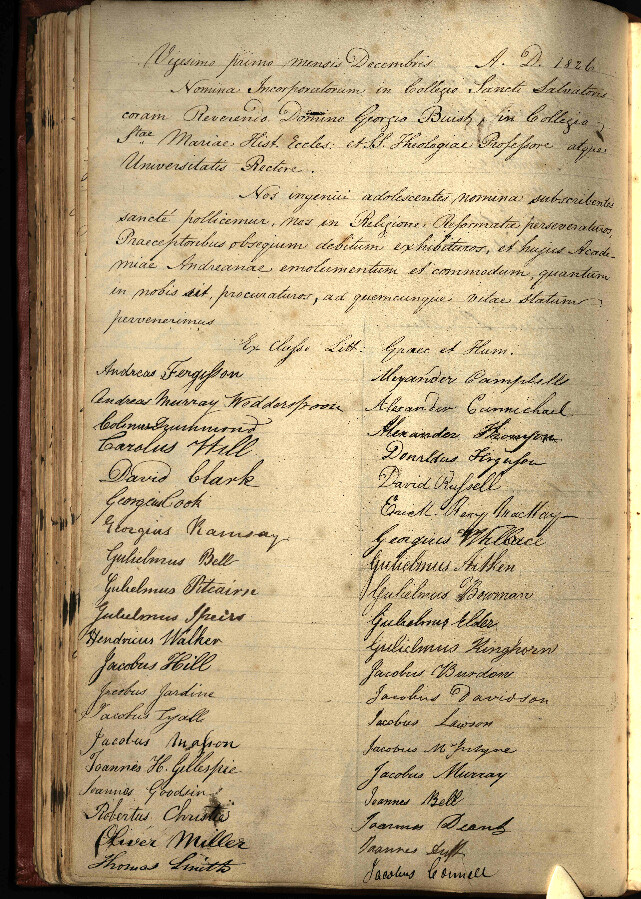 Vigesimo primo mensis Decembris A. D. 1826
Nomina Incorporatorum in Collegio Sancti Salvatoris
coram Reverendo Domino Georgio Buist, in Collegio
Stae Mariae Hist. Eccles: et SS. Theologiae Professore atque
Universitatis Rectore.
Nos ingenui adolescentes nomina subscribentes
sancté pollicemur, nos in Religione Reformatâ perseveraturos,
Praeceptoribus obsequium debitum exhibituros, et hujus Acade-
miae Andreanae emolumentum et commodum, quantum
in nobis sit, procuraturos, ad quemcunque vitae statum
pervenerimus
Ex Classe Litt. Graec et Hum.
Andreas Fergusson
Andreas Murray Wedderspoon
Colinus Drummond
Carolus Hill
David Clark
Georgius Cook
Georgius Ramsay
Gulielmus Bell
Gulielmus Pitcairn
Gulielmus Speirs
Hendricus Walker
Jacobus Hill
Jacobus Jardine
Jacobus Lyall
Jacobus Masson
Joannes H. Gillespie
Joannes Goodsir
Robertus Christie
Oliver Miller
Thomas Smith
Alexander Campbell
Alexander Carmichael
Alexander Thomson
Donaldus Ferguson
David Russell
Mackay
Georgius Wallace
Gulielmus Aitken
Gulielmus Bowman
Gulielmus Elder
Gulielmus Kinghorn
Jacobus Burdon
Jacobus Davidson
Jacobus Lawson
Jacobus McIntyre
Jacobus Murray
Joannes Bell
Joannes Deans
Joannes Duff
Jacobus Connell